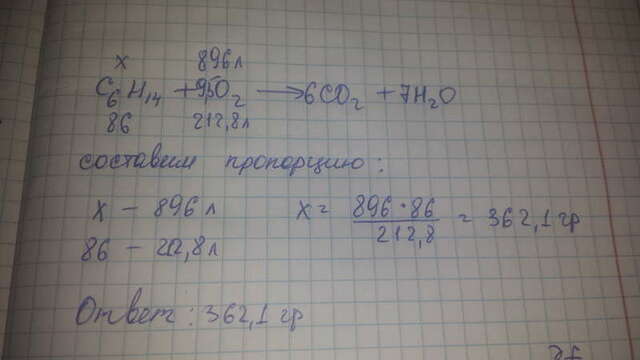 x 896 л
C₆H₁₄ + 9,5O₂ → 6CO₂ + 7H₂O
86 212,8 л
составим пропорцию:
x – 896 л x = 896 · 86 / 212,8 = 362,1 гр
86 – 212,8 л
Ответ: 362,1 гр